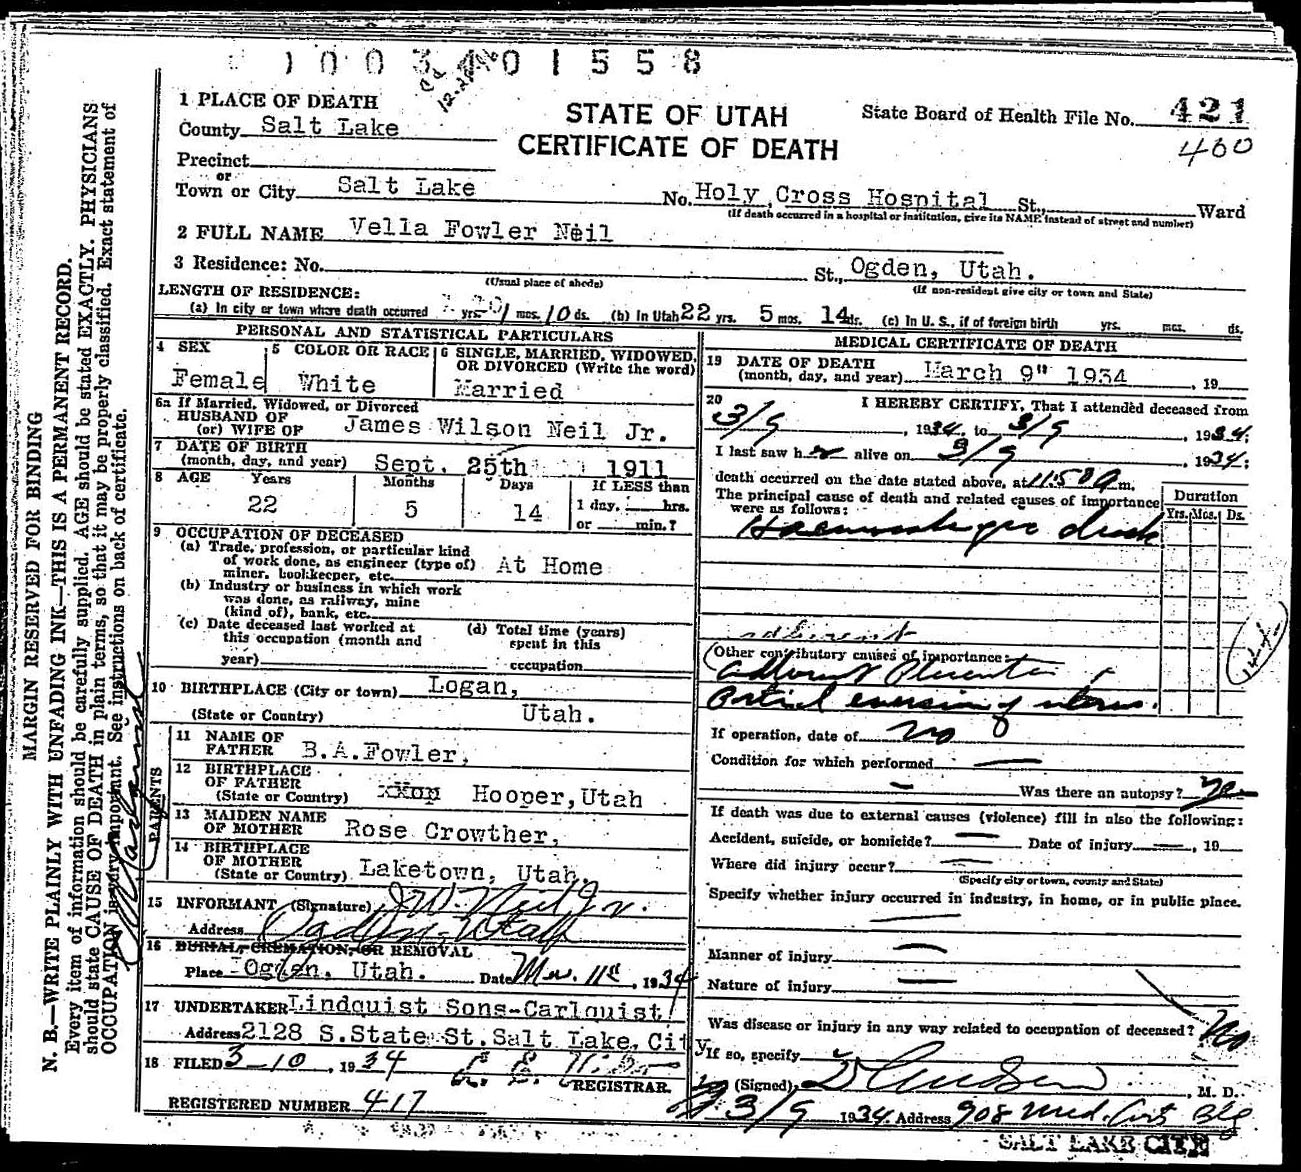 1 0 0 3 4 0 1 5 5 8
1 PLACE OF DEATH
STATE OF UTAH
CERTIFICATE OF DEATH
State Board of Health File No. 421
400
County Salt Lake
Precinct
or
Town or City Salt Lake No. Holy Cross Hospital St., Ward
(If death occurred in a hospital or institution, give its NAME instead of street and number)
2 FULL NAME Vella Fowler Neil
3 Residence: No. St., Ogden, Utah.
(Usual place of abode) (If non-resident give city or town and State)
LENGTH OF RESIDENCE:
(a) In city or town where death occurred yrs. mos. 10 ds. (b) In Utah 22 yrs. 5 mos. 14 ds. (c) In U. S., if of foreign birth yrs. mos. ds.
PERSONAL AND STATISTICAL PARTICULARS
4 SEX Female
5 COLOR OR RACE White
6 SINGLE, MARRIED, WIDOWED, OR DIVORCED (Write the word) Married
6a If Married, Widowed, or Divorced
HUSBAND OF
(or) WIFE OF James Wilson Neil Jr.
7 DATE OF BIRTH
(month, day, and year) Sept. 25th 1911
8 AGE Years Months Days If LESS than
22 5 14 1 day, hrs.
or min.?
9 OCCUPATION OF DECEASED
(a) Trade, profession, or particular kind
of work done, as engineer (type of) At Home
miner, bookkeeper, etc.
(b) Industry or business in which work
was done, as railway, mine
(kind of), bank, etc.
(c) Date deceased last worked at (d) Total time (years)
this occupation (month and spent in this
year) occupation
10 BIRTHPLACE (City or town) Logan,
(State or Country) Utah.
PARENTS
11 NAME OF
FATHER B.A.Fowler,
12 BIRTHPLACE
OF FATHER
(State or Country) Hooper, Utah
13 MAIDEN NAME
OF MOTHER Rose Crowther,
14 BIRTHPLACE
OF MOTHER
(State or Country) Laketown, Utah.
15 INFORMANT (Signature) J.W. Neil Jr.
Address Ogden - Utah
16 BURIAL, CREMATION, OR REMOVAL
Place Ogden, Utah. Date Mar. 11st, 1934
17 UNDERTAKER Lindquist Sons-Carlquist
Address 2128 S.State St.Salt Lake, City
18 FILED 3-10, 1934
REGISTRAR.
REGISTERED NUMBER 417
MEDICAL CERTIFICATE OF DEATH
19 DATE OF DEATH
(month, day, and year) March 9" 1934, 19
20 I HEREBY CERTIFY, That I attended deceased from
3/9, 1934, to 3/9, 1934;
I last saw her alive on 3/9, 1934;
death occurred on the date stated above, at 11:50 a m.
The principal cause of death and related causes of importance
were as follows:
Duration
Yrs. Mos. Ds.
Haemorrhagic shock
adherent
Other contributory causes of importance:
Adherent Placenta &
Partial eversion of uterus.
If operation, date of no
Condition for which performed
Was there an autopsy? yes
If death was due to external causes (violence) fill in also the following:
Accident, suicide, or homicide? Date of injury, 19
Where did injury occur?
(Specify city or town, county and State)
Specify whether injury occurred in industry, in home, or in public place.
Manner of injury
Nature of injury
Was disease or injury in any way related to occupation of deceased? No
If so, specify
(Signed), M. D.
3/9 1934 Address 908 Med. Arts Bldg
SALT LAKE CITY
MARGIN RESERVED FOR BINDING
N. B.—WRITE PLAINLY WITH UNFADING INK—THIS IS A PERMANENT RECORD.
Every item of information should be carefully supplied. AGE should be stated EXACTLY. PHYSICIANS
should state CAUSE OF DEATH in plain terms, so that it may be properly classified. Exact statement of
OCCUPATION is very important. See instructions on back of certificate.